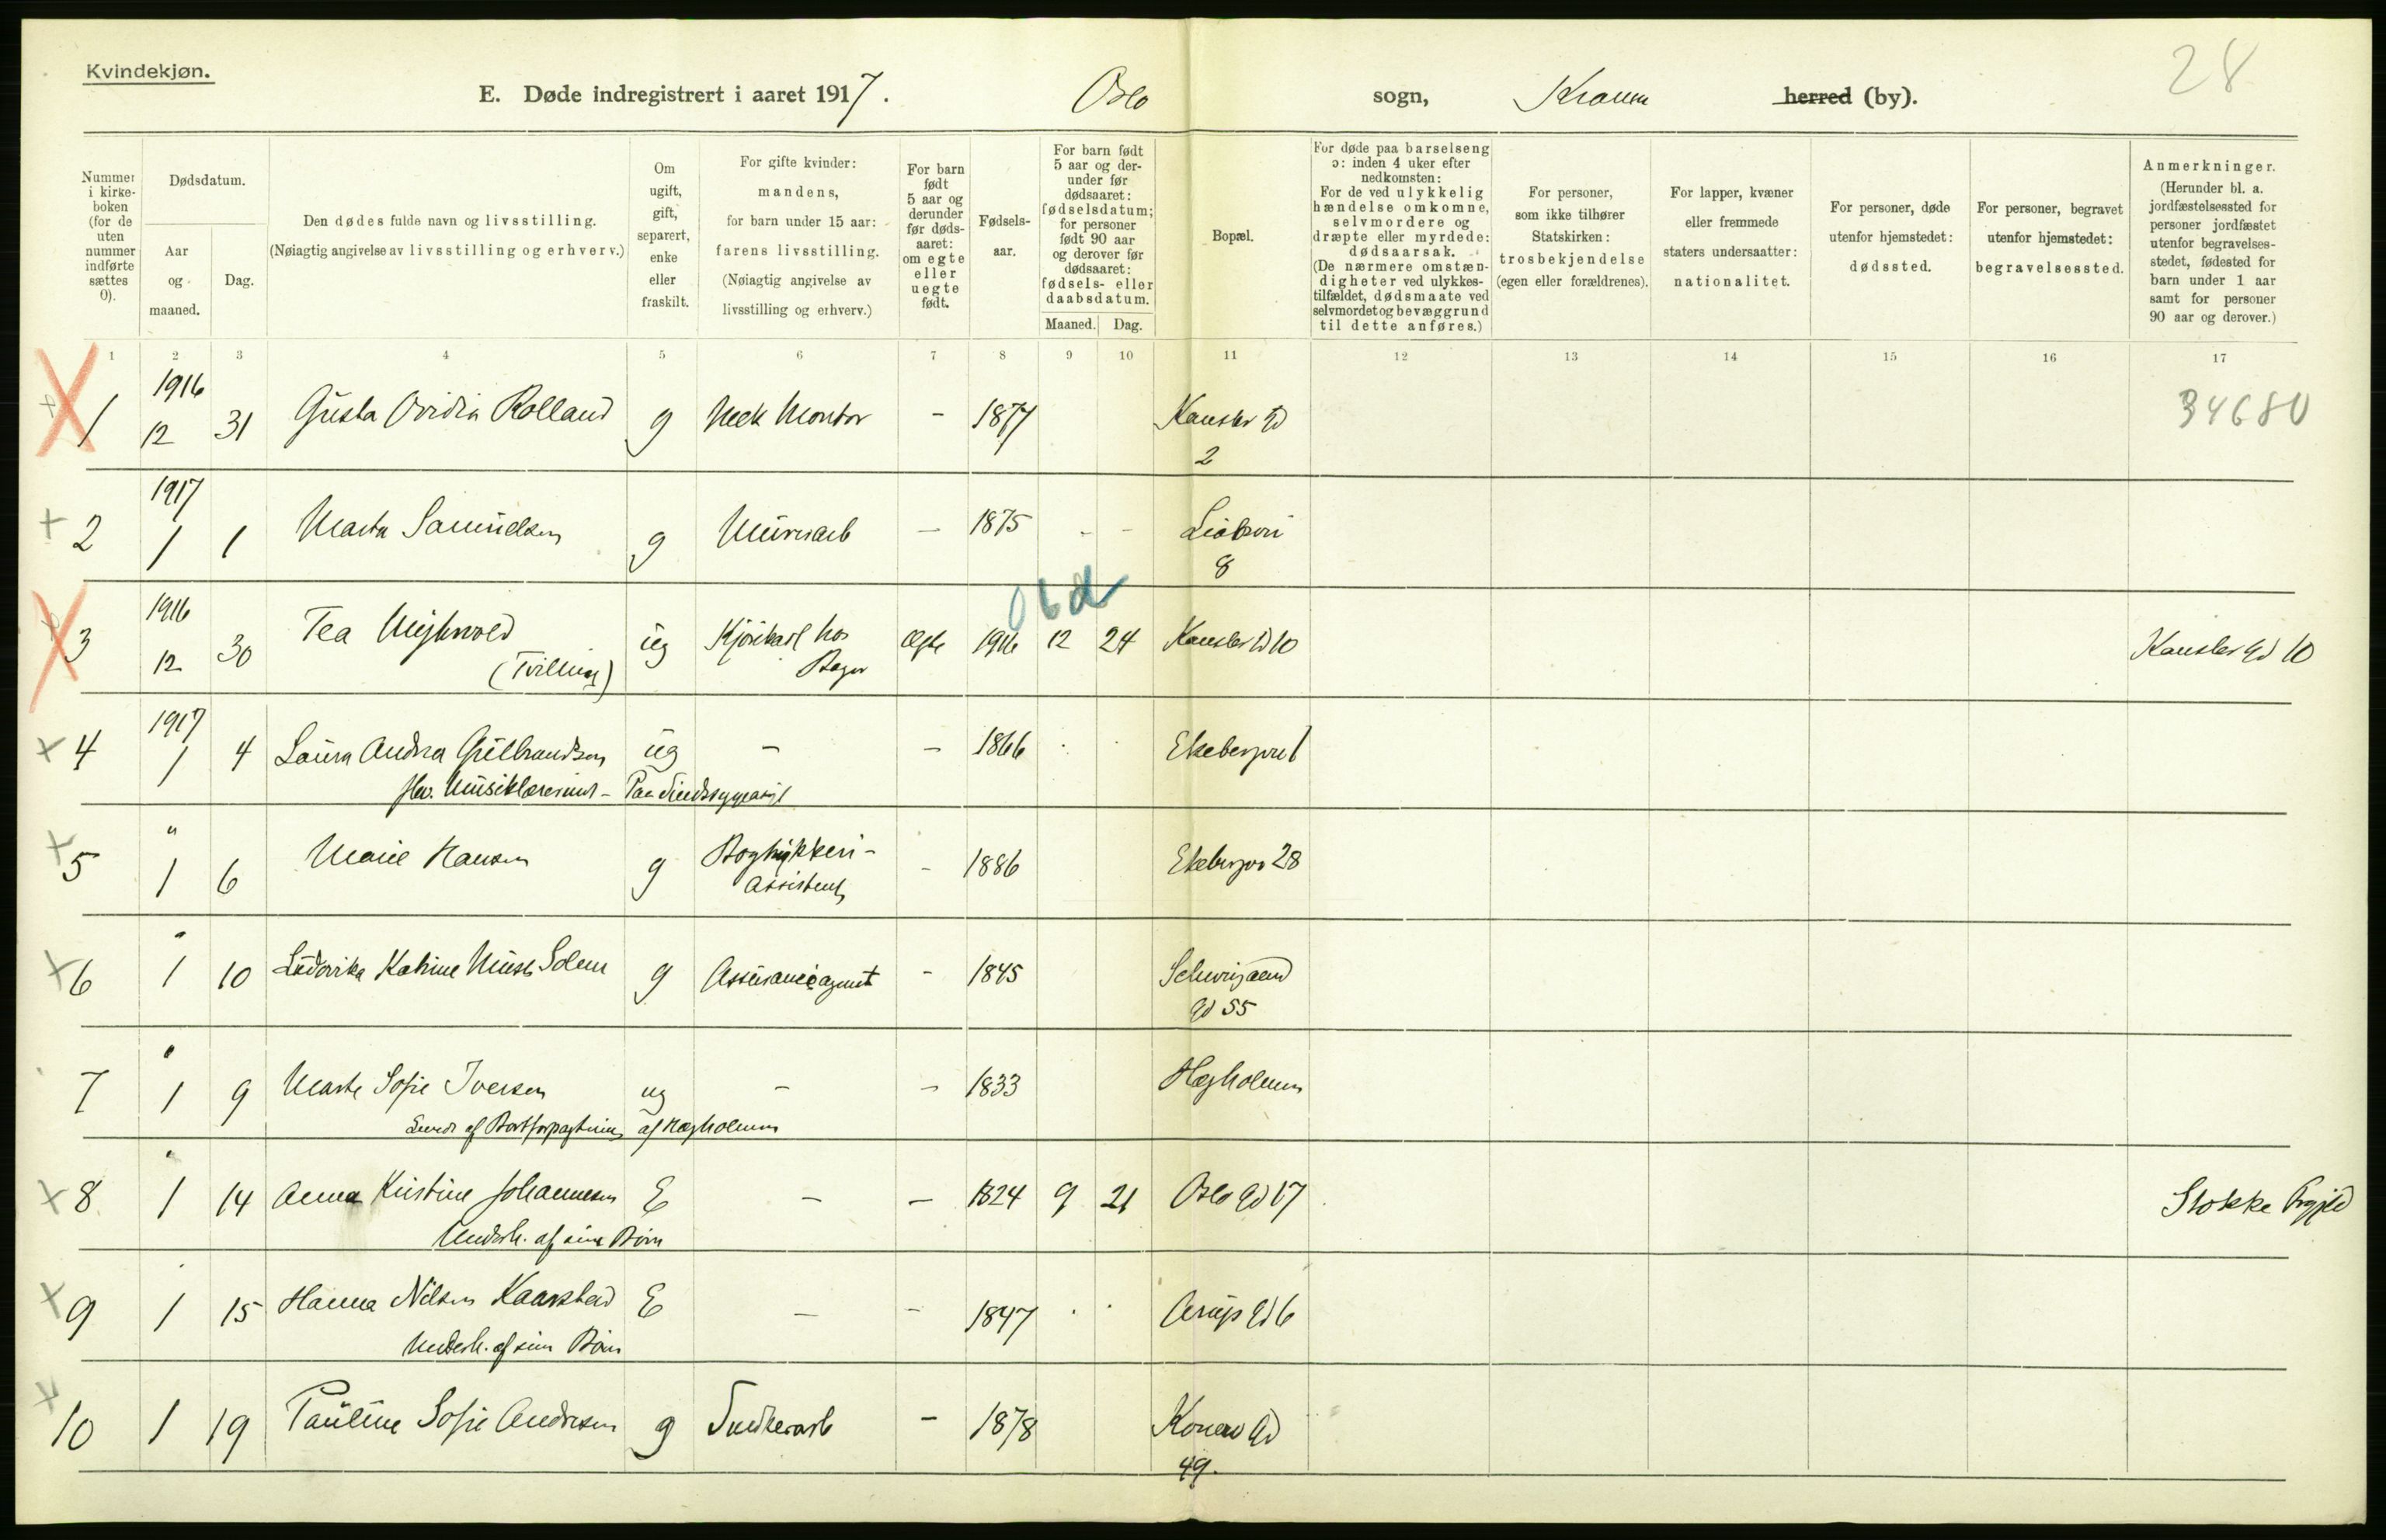 Kvindekjøn.
28
E. Døde indregistrert i aaret 1917. Oslo sogn, Krania herred (by).
Nummer i kirke-boken (for de uten nummer indførte sættes 0).
Dødsdatum.
Aar og maaned.
Dag.
Den dødes fulde navn og livsstilling.
(Nøiagtig angivelse av livsstilling og erhverv.)
Om ugift, gift, separert, enke eller fraskilt.
For gifte kvinder: mandens, for barn under 15 aar: farens livsstilling.
(Nøiagtig angivelse av livsstilling og erhverv.)
For barn født 5 aar og derunder før døds-aaret: om egte eller uegte født.
Fødsels-aar.
For barn født 5 aar og der-under før dødsaaret: fødselsdatum; for personer født 90 aar og derover før dødsaaret: fødsels- eller daabsdatum.
Maaned. Dag.
Bopæl.
For døde paa barselseng ɔ: inden 4 uker efter nedkomsten:
For de ved ulykkelig hændelse omkomne, selvmordere og dræpte eller myrdede: dødsaarsak.
(De nærmere omstæn-digheter ved ulykkes-tilfældet, dødsmaate ved selvmordet og bevæggrund til dette anføres.)
For personer, som ikke tilhører Statskirken: trosbekjendelse (egen eller forældrenes).
For lapper, kvæner eller fremmede staters undersaatter: nationalitet.
For personer, døde utenfor hjemstedet: dødssted.
For personer, begravet utenfor hjemstedet: begravelsessted.
Anmerkninger.
(Herunder bl. a. jordfæstelsessted for personer jordfæstet utenfor begravelses-stedet, fødested for barn under 1 aar samt for personer 90 aar og derover.)
1 2 3 4 5 6 7 8 9 10 11 12 13 14 15 16 17
1916
1 12 31 Gusta Ovidia Rolland g Mek Montør - 1877 Kansler Gd 34680
2
1917
2 1 1 Marta Samuelsen g Murerarb - 1875 - - Liabrovei
8
Obd
1916
3 12 30 Tea Myhrvold ug Kjørekarl hos ægte 1916 12 24 Kansler Gd 10 Kansler Gd 10
(Tvilling) Bager
1917
4 1 4 Laura Andrea Gulbrandsen ug - - 1866 Ekebergvei 1
fhv. Musiklærerinde - Paa Sindssygeasyl
"
5 1 6 Marie Hansen g Bogtrykkeri- - 1886 Ekebergv 28
Assistent
"
6 1 10 Ludovika Katrine Solem g Assuranceagent - 1845 Schweigaard
Gd 55
"
7 1 9 Marte Sofie Iversen ug - - 1833 Hegholmen
af Hegholmen
"
8 1 14 Anna Kristine Johannesen E - - 1824 9 21 Oslo Gd 17 Stokke Prgjld
Underh. af sine Børn
9 1 15 Hanna Nilsen Kaarstad E - - 1847 Arups Gd 6
Underh. af sine Børn
10 1 19 Pauline Sofie Andresen g Snedkerarb - 1878 Konows Gd
49.